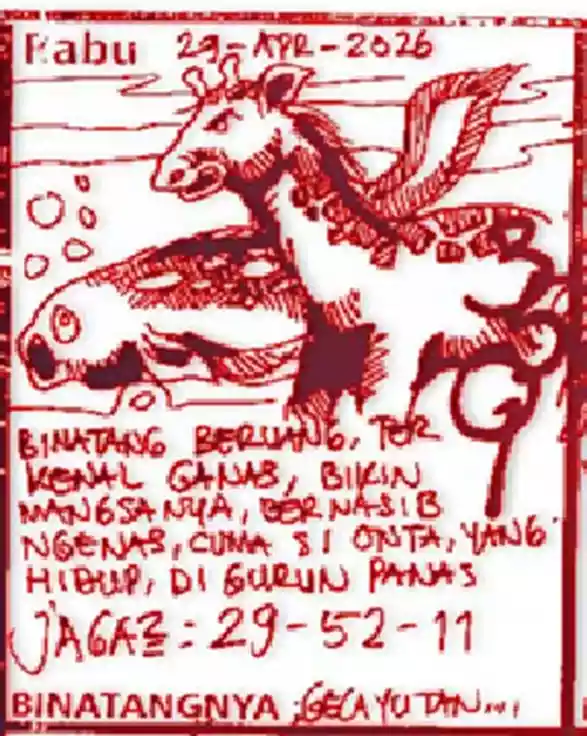 Rabu 29-APR-2026
BINATANG BERUANG, TER
KENAL GANAS, BIKIN
MANGSANYA, BERNASIB
NGENAS, CUMA SI ONTA, YANG
HIDUP, DI GURUN PANAS
JAGA2 : 29-52-11
BINATANGNYA :